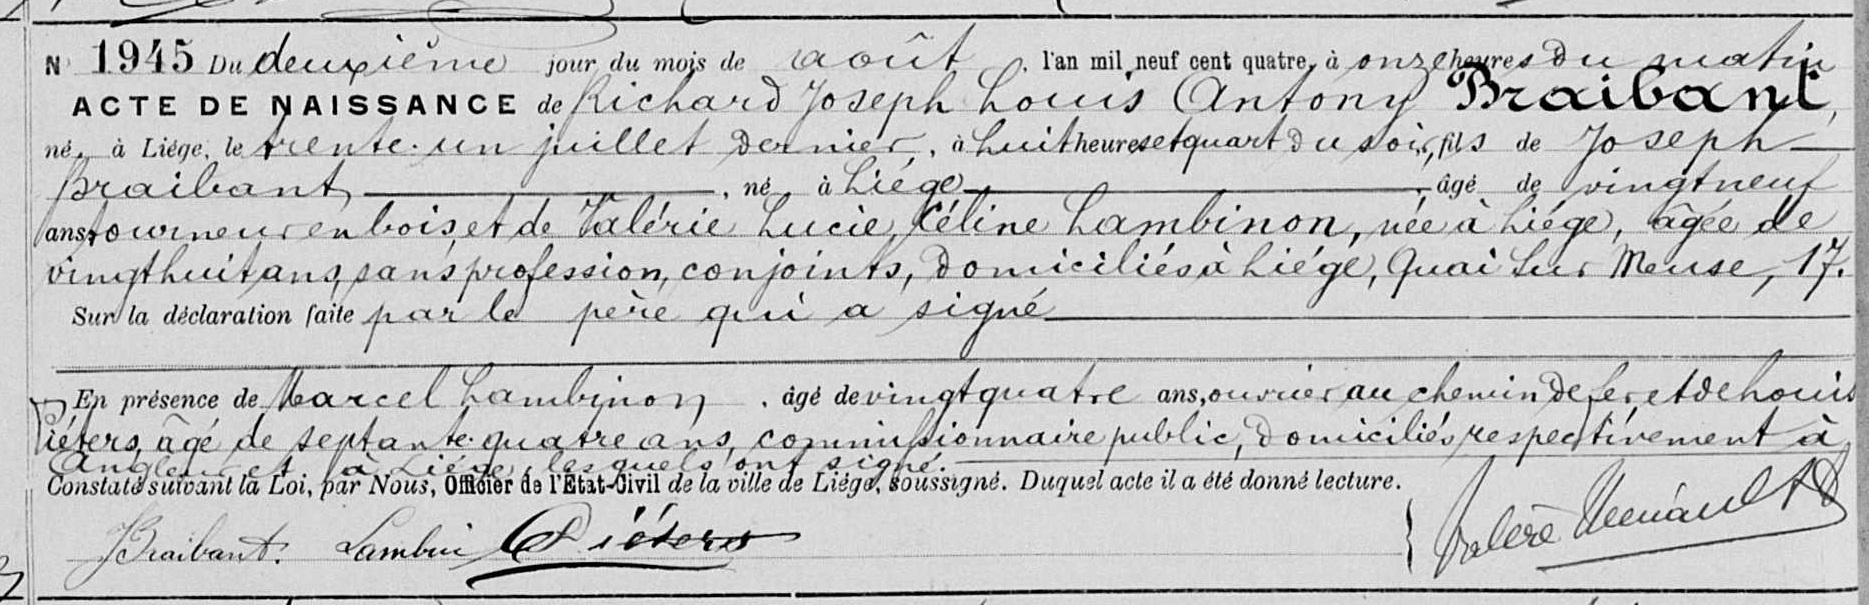 N° 1945 Du deuxième jour du mois de août, l'an mil neuf cent quatre, à onze heures du matin
ACTE DE NAISSANCE de Richard Joseph Louis Antony Braibant,
né à Liége, le trente-un juillet dernier, à huit heures et quart du soir, fils de Joseph
Braibant, né à Liége, âgé de vingt neuf
ans, tourneur en bois, et de Valérie Lucie Céline Lambinon, née à Liége, âgée de
vingt huit ans, sans profession, conjoints, domiciliés à Liége, Quai sur Meuse, 17.
Sur la déclaration faite par le père qui a signé
En présence de Marcel Lambinon, âgé de vingt quatre ans, ouvrier au chemin de fer et de Louis
Piéters, âgé de septante-quatre ans, commissionnaire public, domiciliés respectivement à
Angleur et à Liége, lesquels ont signé.
Constaté suivant la Loi, par Nous, Officier de l'État-Civil de la ville de Liége, soussigné. Duquel acte il a été donné lecture.
JBraibant. Lambin Piéters Valère